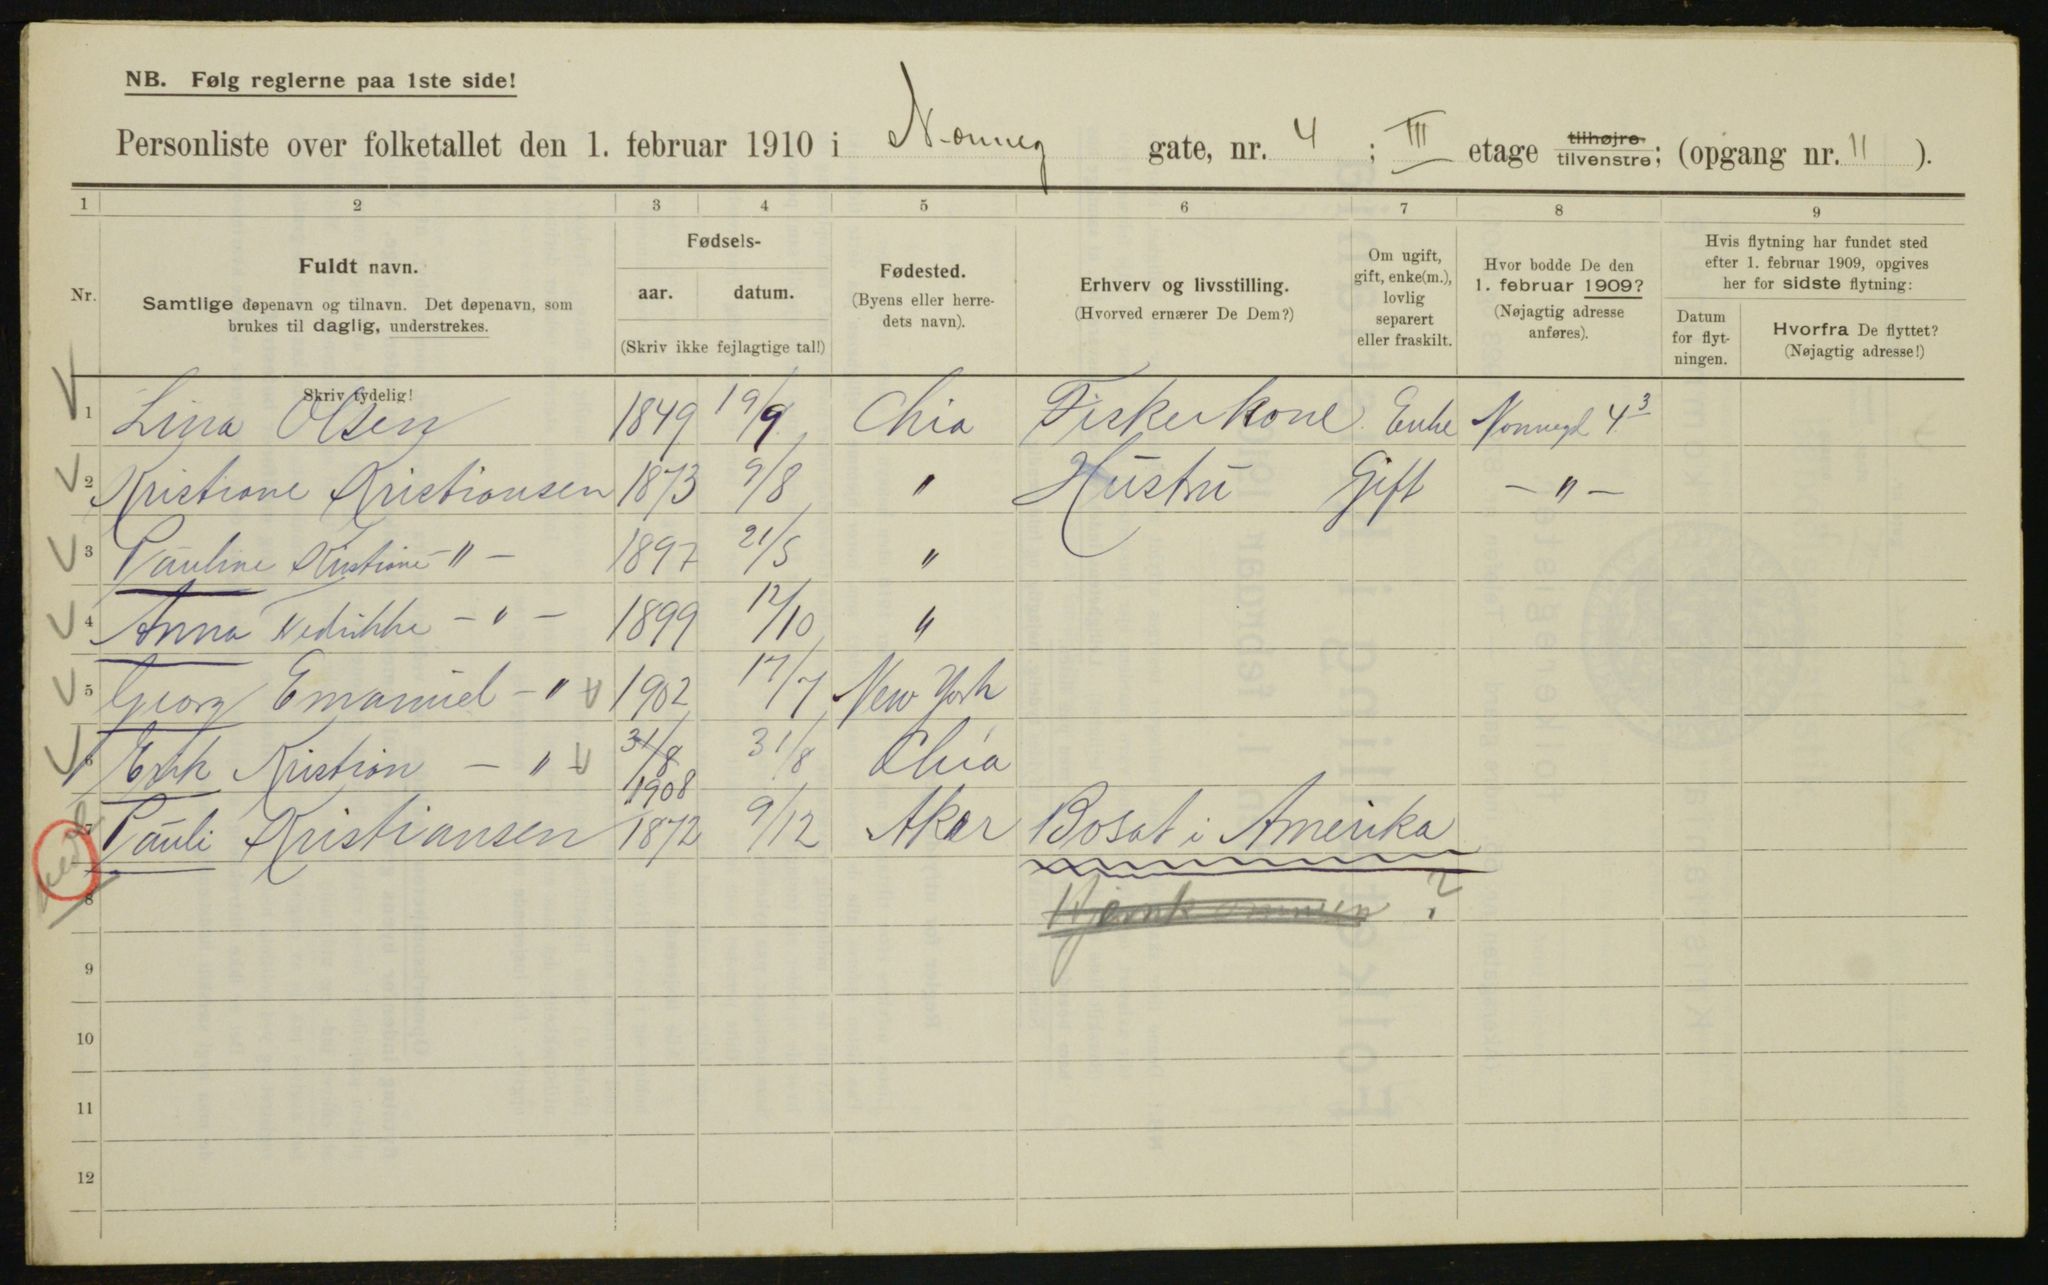 NB. Følg reglerne paa 1ste side!
Personliste over folketallet den 1. februar 1910 i Nonneg gate, nr. 4 ; III etage tilhøjre tilvenstre; (opgang nr. 11 ).
1 2 3 4 5 6 7 8 9
Nr.
Fuldt navn.
Samtlige døpenavn og tilnavn. Det døpenavn, som
brukes til daglig, understrekes.
Skriv tydelig!
Fødsels-
aar. datum.
(Skriv ikke fejlagtige tal!)
Fødested.
(Byens eller herre-
dets navn).
Erhverv og livsstilling.
(Hvorved ernærer De Dem?)
Om ugift,
gift, enke(m.),
lovlig
separert
eller fraskilt.
Hvor bodde De den
1. februar 1909?
(Nøjagtig adresse
anføres).
Hvis flytning har fundet sted
efter 1. februar 1909, opgives
her for sidste flytning:
Datum
for flyt-
ningen.
Hvorfra De flyttet?
(Nøjagtig adresse!)
1 Lina Olsen 1849 19/9 Chia Fiskerkone Enke Nonnegd 4 3
2 Kristiane Kristiansen 1873 9/8 " Hustru Gift – " –
3 Pauline Kristiane – " – 1897 21/5 "
4 Anna Fredrikke – " – 1899 12/10 "
5 Georg Emanuel – " 1902 17/7 New York
6 Erik Kristian – " 31/8 1908 31/8 Chia
7 Pauli Kristiansen 1872 9/12 Aker Bosat i Amerika
8 ?
9
10
11
12